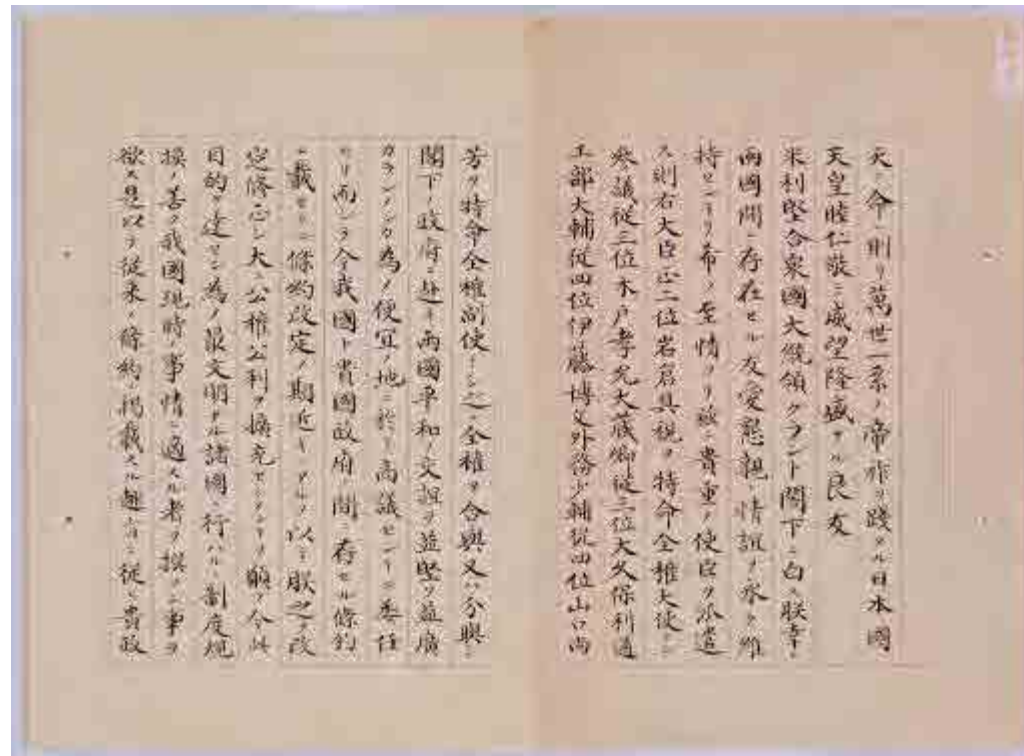 天ノ命ニ則リ萬世一系ノ帝祚ヲ踐タル日本國
天皇睦仁敬ニ威望隆盛ナル良友
米利堅合衆國大統領グラント閣下ニ白ス朕幸ニ
両國間ニ存在セル友愛懇親ノ情誼ヲ永ク維
持センヿヲ希フノ至情ヨリ茲ニ貴重ノ使臣ヲ派遣
ス則右大臣正二位岩倉具視ヲ特命全権大使トシ
参議従三位木戸孝允大蔵卿従三位大久保利通
工部大輔従四位伊藤博文外務少輔従四位山口尚
芳ヲ特命全権副使トシ之ニ全権ヲ合與又ハ分與シ
閣下ノ政府ニ赴キ両國平和ノ交誼ヲ益堅ウ益廣
カランメンカ為ノ便宜ノ地ニ於テ商議センヿニ委任
セリ而シテ今我國ト貴國政府ノ間ニ存セル條約
ニ載セタル條約改定ノ期近キアルヲ以テ朕之ヲ改
定修正シ大ニ公権公利ヲ擴充センヿヲ願フ今此
目的ヲ達セン為ノ最文明ナル諸國ニ行ハルヽ制度規
模ノ善ク我國現時ノ事情ニ適スル者ヲ撰ン事ヲ
欲ス是以テ従来ノ條約ニ掲載スル趣ニヨニ従ヒ貴政